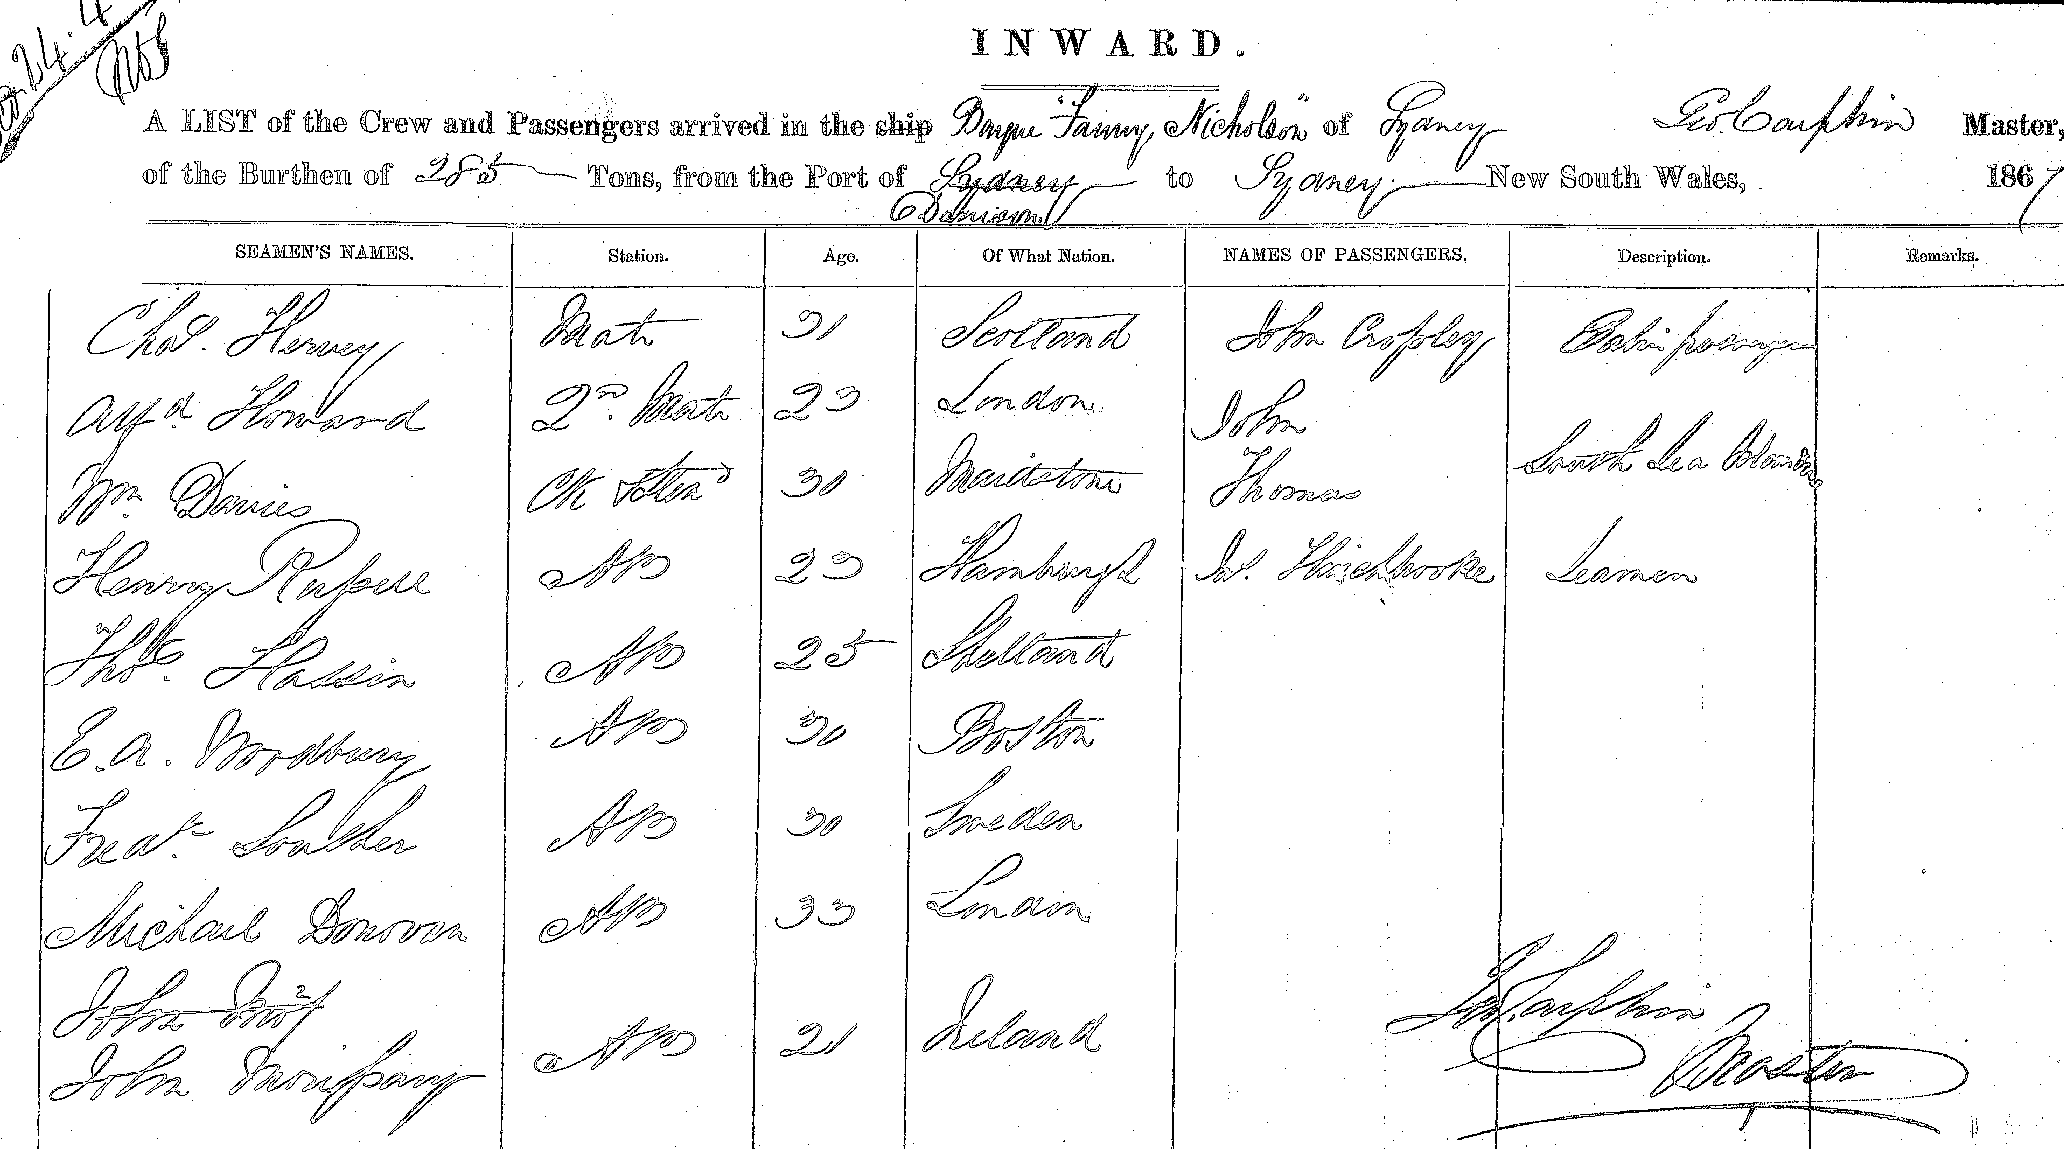 INWARD.
A LIST of the Crew and Passengers arrived in the ship Barque "Fanny Nicholson" of Sydney Geo. Master,
of the Burthen of 285 Tons, from the Port of Sydney to Sydney New South Wales, 1867
SEAMEN'S NAMES. Station. Age. Of What Nation. NAMES OF PASSENGERS. Description. Remarks.
Chas. Hervey Mate 31 Scotland John Cropley Cabin passenger
Alfd. Howard 2nd. Mate 23 London John
South Sea Islanders
Wm. Davies Ck Stewd 30 Maidstone Thomas
Henry AB 23 Hamburgh Jas. Hinchbrooke Seamen
Thos. Hassin AB 25 Shetland
E. A. Woodbury AB 30 Boston
Fredk. Souther AB 30 Sweden
Michael Donovan AB 33 London
John
John AB 21 Ireland
Geo.
Master